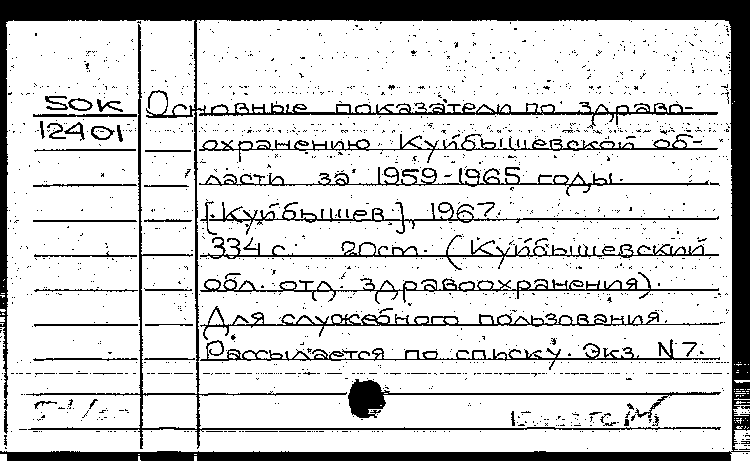 50К Основные показатели по здраво-
12401
охранению Куйбышевской об-
ласти за 1959-1965 годы.
[Куйбышев], 1967.
334 с. 20cm. (Куйбышевский
обл. отд. здравоохранения).
Для служебного пользования.
Рассылается по списку. Экз. N 7.